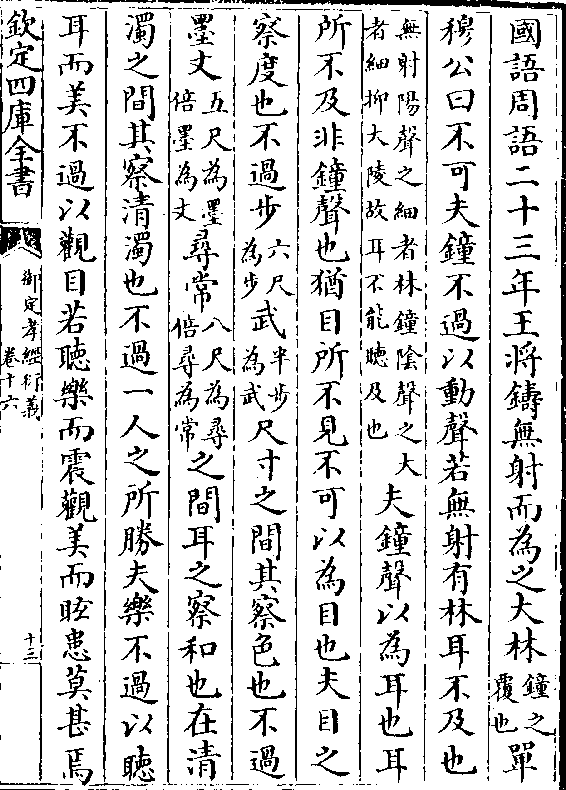 國語周語二十三年王將鑄無射而為之大林鐘之覆也單
穆公曰不可夫鐘不過以動聲若無射有林耳不及也
無射陽聲之細者林鐘陰聲之大者細抑大陵故耳不能聽及也夫鐘聲以為耳也耳
所不及非鐘聲也猶目所不見不可以為目也夫目之
察度也不過步六尺為步武半步為武尺寸之間其察色也不過
墨丈五尺為墨倍墨為丈尋常八尺為尋倍尋為常之間耳之察和也在清
濁之間其察清濁也不過一人之所勝夫樂不過以聽
耳而美不過以觀目若聽樂而震觀美而眩患莫甚焉
欽定四庫全書
御定孝經衍義
卷十六
十三